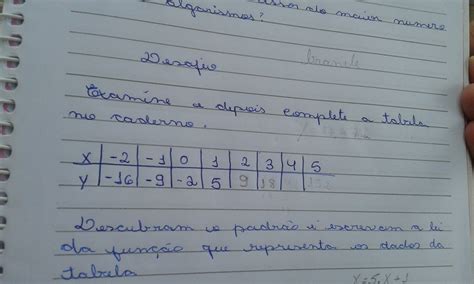 algarismos? do maior numero
Desafio
Examine e depois complete a tabela
no caderno.
x | -2 | -1 | 0 | 1 | 2 | 3 | 4 | 5
y | -16 | -9 | -2 | 5 | 9 | 18
Descubram o padrão e escrevam a lei
da função que representa os dados da
tabela